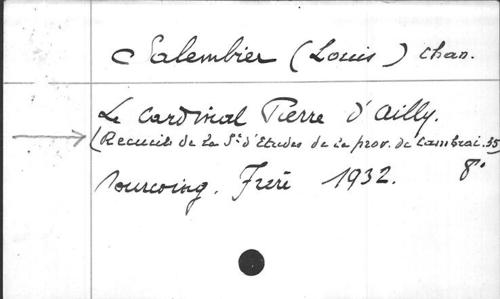 Salembier (Louis) chan.
Le Cardinal Pierre d'Ailly.
(Recueils de la Sté d'Etudes de la prov. de Cambrai. 35)
Tourcoing. Frère 1932. 8°